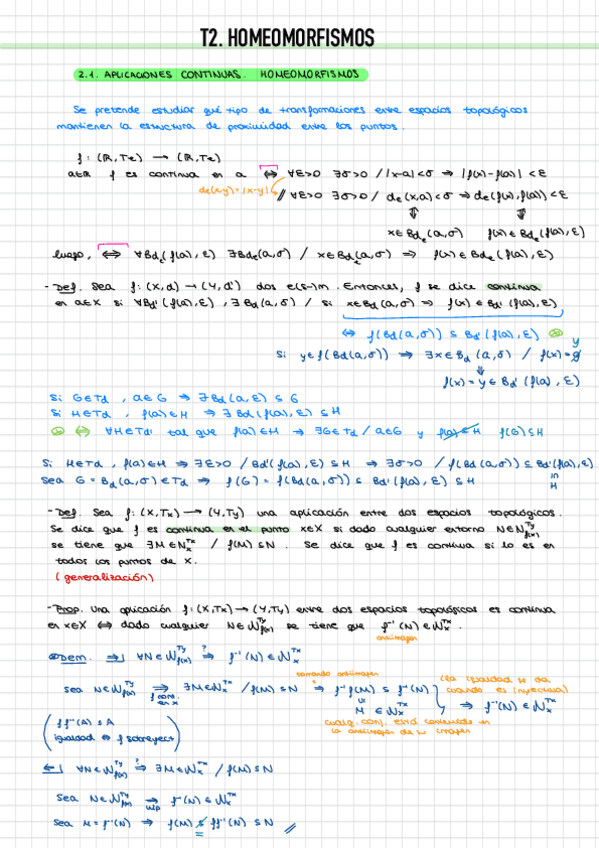 T2. HOMEOMORFISMOS
2.1. APLICACIONES CONTINUAS. HOMEOMORFISMOS
Se pretende estudiar qué tipo de transformaciones entre espacios topológicos
mantienen la estructura de proximidad entre los puntos.
f: (ℝ, Te) → (ℝ, Te)
a∈ℝ f es continua en a ⟺ ∀ε>0 ∃σ>0 / |x-a|<σ ⇒ |f(x)-f(a)| < ε
de(x,y)=|x-y| // ∀ε>0 ∃σ>0 / de(x,a)<σ ⇒ de(f(x),f(a))<ε
⇕ ⇕
x∈Bde(a,σ) f(x)∈Bde(f(a),ε)
luego, ⟺ ∀Bde(f(a),ε) ∃Bde(a,σ) / x∈Bde(a,σ) ⇒ f(x)∈Bde(f(a),ε)
- Def. Sea f: (X,d) → (Y,d') dos e(s-)m. Entonces, f se dice continua
en a∈X si ∀Bd'(f(a),ε), ∃Bd(a,σ) / si x∈Bd(a,σ) ⇒ f(x)∈Bd'(f(a),ε)
⟺ f(Bd(a,σ)) ⊆ Bd'(f(a),ε)
Si y∈f(Bd(a,σ)) ⇒ ∃x∈Bd(a,σ) / f(x)=y
⇓
f(x)=y∈Bd'(f(a),ε)
Si G∈Td, a∈G ⇒ ∃Bd(a,ε) ⊆ G
Si H∈Td, f(a)∈H ⇒ ∃Bd(f(a),ε) ⊆ H
⟺ ∀H∈Td' tal que f(a)∈H ⇒ ∃G∈Td / a∈G y f(G)⊆H
Si H∈Td, f(a)∈H ⇒ ∃ε>0 / Bd'(f(a),ε) ⊆ H ⇒ ∃σ>0 / f(Bd(a,σ)) ⊆ Bd'(f(a),ε)
Sea G = Bd(a,σ)∈Td ⇒ f(G) = f(Bd(a,σ)) ⊆ Bd'(f(a),ε) ⊆ H
- Def. Sea f: (X,Tx) → (Y,Ty) una aplicación entre dos espacios topológicos.
Se dice que f es continua en el punto x∈X si dado cualquier entorno N∈N_f(x)^Ty
se tiene que ∃M∈N_x^Tx / f(M)⊆N. Se dice que f es continua si lo es en
todos los puntos de X.
(generalización)
- Prop. Una aplicación f: (X,Tx) → (Y,Ty) entre dos espacios topológicos es continua
en x∈X ⟺ dado cualquier N∈N_f(x)^Ty se tiene que f⁻¹(N)∈N_x^Tx.
antiimagen
Dem. ⇒| ∀N∈N_f(x)^Ty ⇒? f⁻¹(N)∈N_x^Tx
tomando antiimagen
(la igualdad se da cuando es inyectiva)
Sea N∈N_f(x)^Ty ⇒ f cont. en x ∃M∈N_x^Tx / f(M)⊆N ⇒ f⁻¹f(M) ⊆ f⁻¹(N) } ⇒ f⁻¹(N)∈N_x^Tx
M∈N_x^Tx
cualq. conj. está contenido en
la antiimagen de su imagen
(ff⁻¹(A)⊆A
igualdad ⟺ f sobreyect)
⇐| ∀N∈N_f(x)^Ty ⇒? ∃M∈N_x^Tx / f(M)⊆N
Sea N∈N_f(x)^Ty ⇒ hip f⁻¹(N)∈N_x^Tx
Sea M=f⁻¹(N) ⇒ f(M) = ff⁻¹(N) ⊆ N //